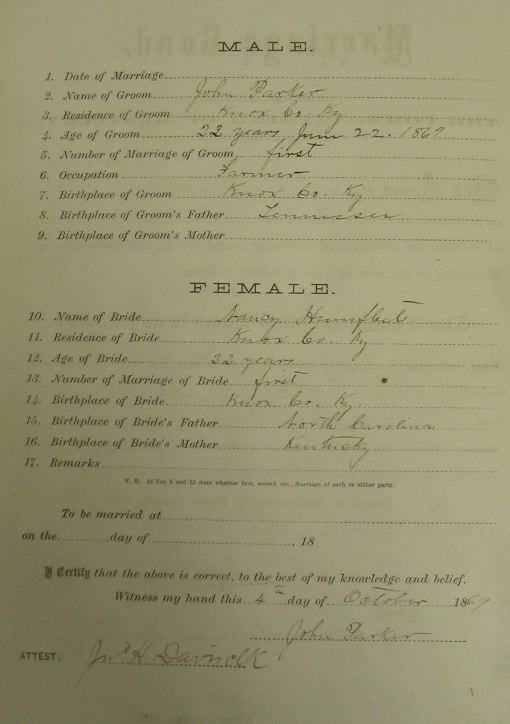 MALE.
1. Date of Marriage
2. Name of Groom John Parker
3. Residence of Groom Knox Co. Ky
4. Age of Groom 22 years June 22. 1869
5. Number of Marriage of Groom first
6. Occupation Farmer
7. Birthplace of Groom Knox Co. Ky
8. Birthplace of Groom's Father Tennessee
9. Birthplace of Groom's Mother
FEMALE.
10. Name of Bride Nancy
11. Residence of Bride Knox Co. Ky
12. Age of Bride 22 years
13. Number of Marriage of Bride first
14. Birthplace of Bride Knox Co. Ky.
15. Birthplace of Bride's Father North Carolina
16. Birthplace of Bride's Mother Kentucky
17. Remarks
N. B. At Nos. 5 and 13 state whether first, second, etc., Marriage of each or either party.
To be married at
on the day of , 18
I Certify that the above is correct, to the best of my knowledge and belief.
Witness my hand this 4th day of October 1869
John Parker
ATTEST: Jno H